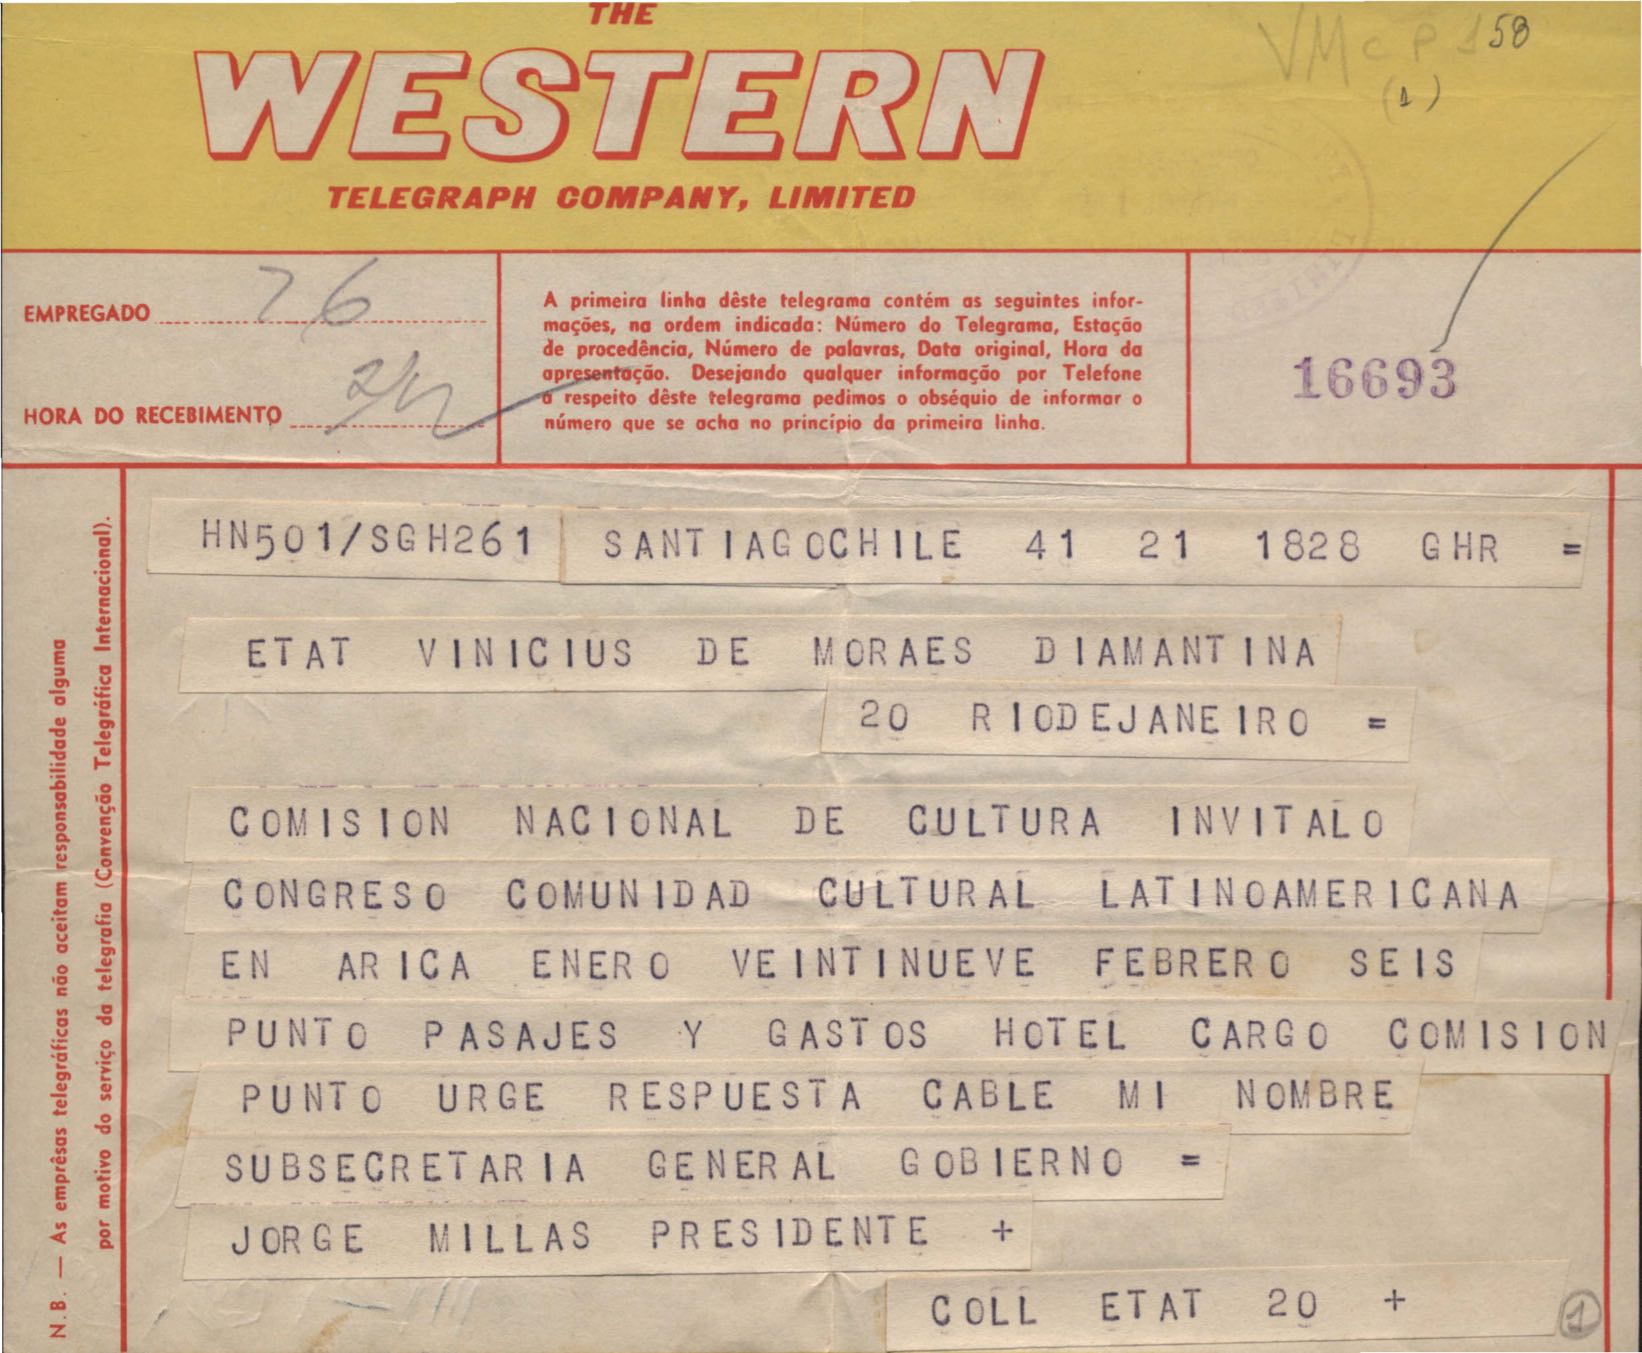 THE
WESTERN
TELEGRAPH COMPANY, LIMITED
VMcP 158
(1)
EMPREGADO 76
HORA DO RECEBIMENTO
A primeira linha dêste telegrama contém as seguintes infor-
mações, na ordem indicada: Número do Telegrama, Estação
de procedência, Número de palavras, Data original, Hora da
apresentação. Desejando qualquer informação por Telefone
a respeito dêste telegrama pedimos o obséquio de informar o
número que se acha no princípio da primeira linha.
16693
N.B. — As emprêsas telegráficas não aceitam responsabilidade alguma
por motivo do serviço da telegrafia (Convenção Telegráfica Internacional).
HN501/SGH261 SANTIAGOCHILE 41 21 1828 GHR =
ETAT VINICIUS DE MORAES DIAMANTINA
20 RIODEJANEIRO =
COMISION NACIONAL DE CULTURA INVITALO
CONGRESO COMUNIDAD CULTURAL LATINOAMERICANA
EN ARICA ENERO VEINTINUEVE FEBRERO SEIS
PUNTO PASAJES Y GASTOS HOTEL CARGO COMISION
PUNTO URGE RESPUESTA CABLE MI NOMBRE
SUBSECRETARIA GENERAL GOBIERNO =
JORGE MILLAS PRESIDENTE +
COLL ETAT 20 +
1